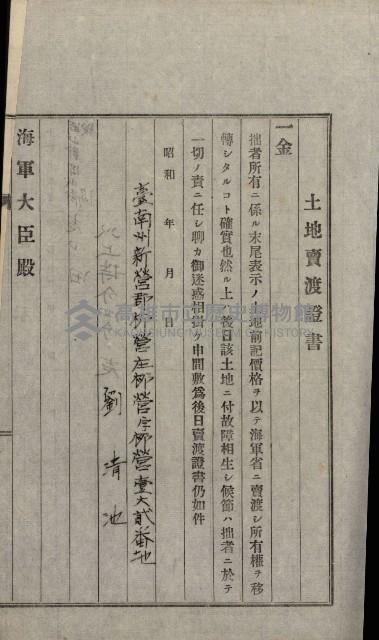 土地賣渡證書
一金
拙者所有ニ係ル末尾表示ノ土地前記價格ヲ以テ海軍省ニ賣渡シ所有權ヲ移
轉シタルコト確實也然ル上ハ後日該土地ニ付故障相生シ候節ハ拙者ニ於テ
一切ノ責ニ任シ聊カ御迷惑相掛ケ申間敷爲後日賣渡證書仍如件
昭和　年　月　日
臺南州新營郡柳營庄柳營字柳營壹六貳番地
劉清池
海軍大臣殿
高雄市立歷史博物館
KAOHSIUNG MUSEUM OF HISTORY